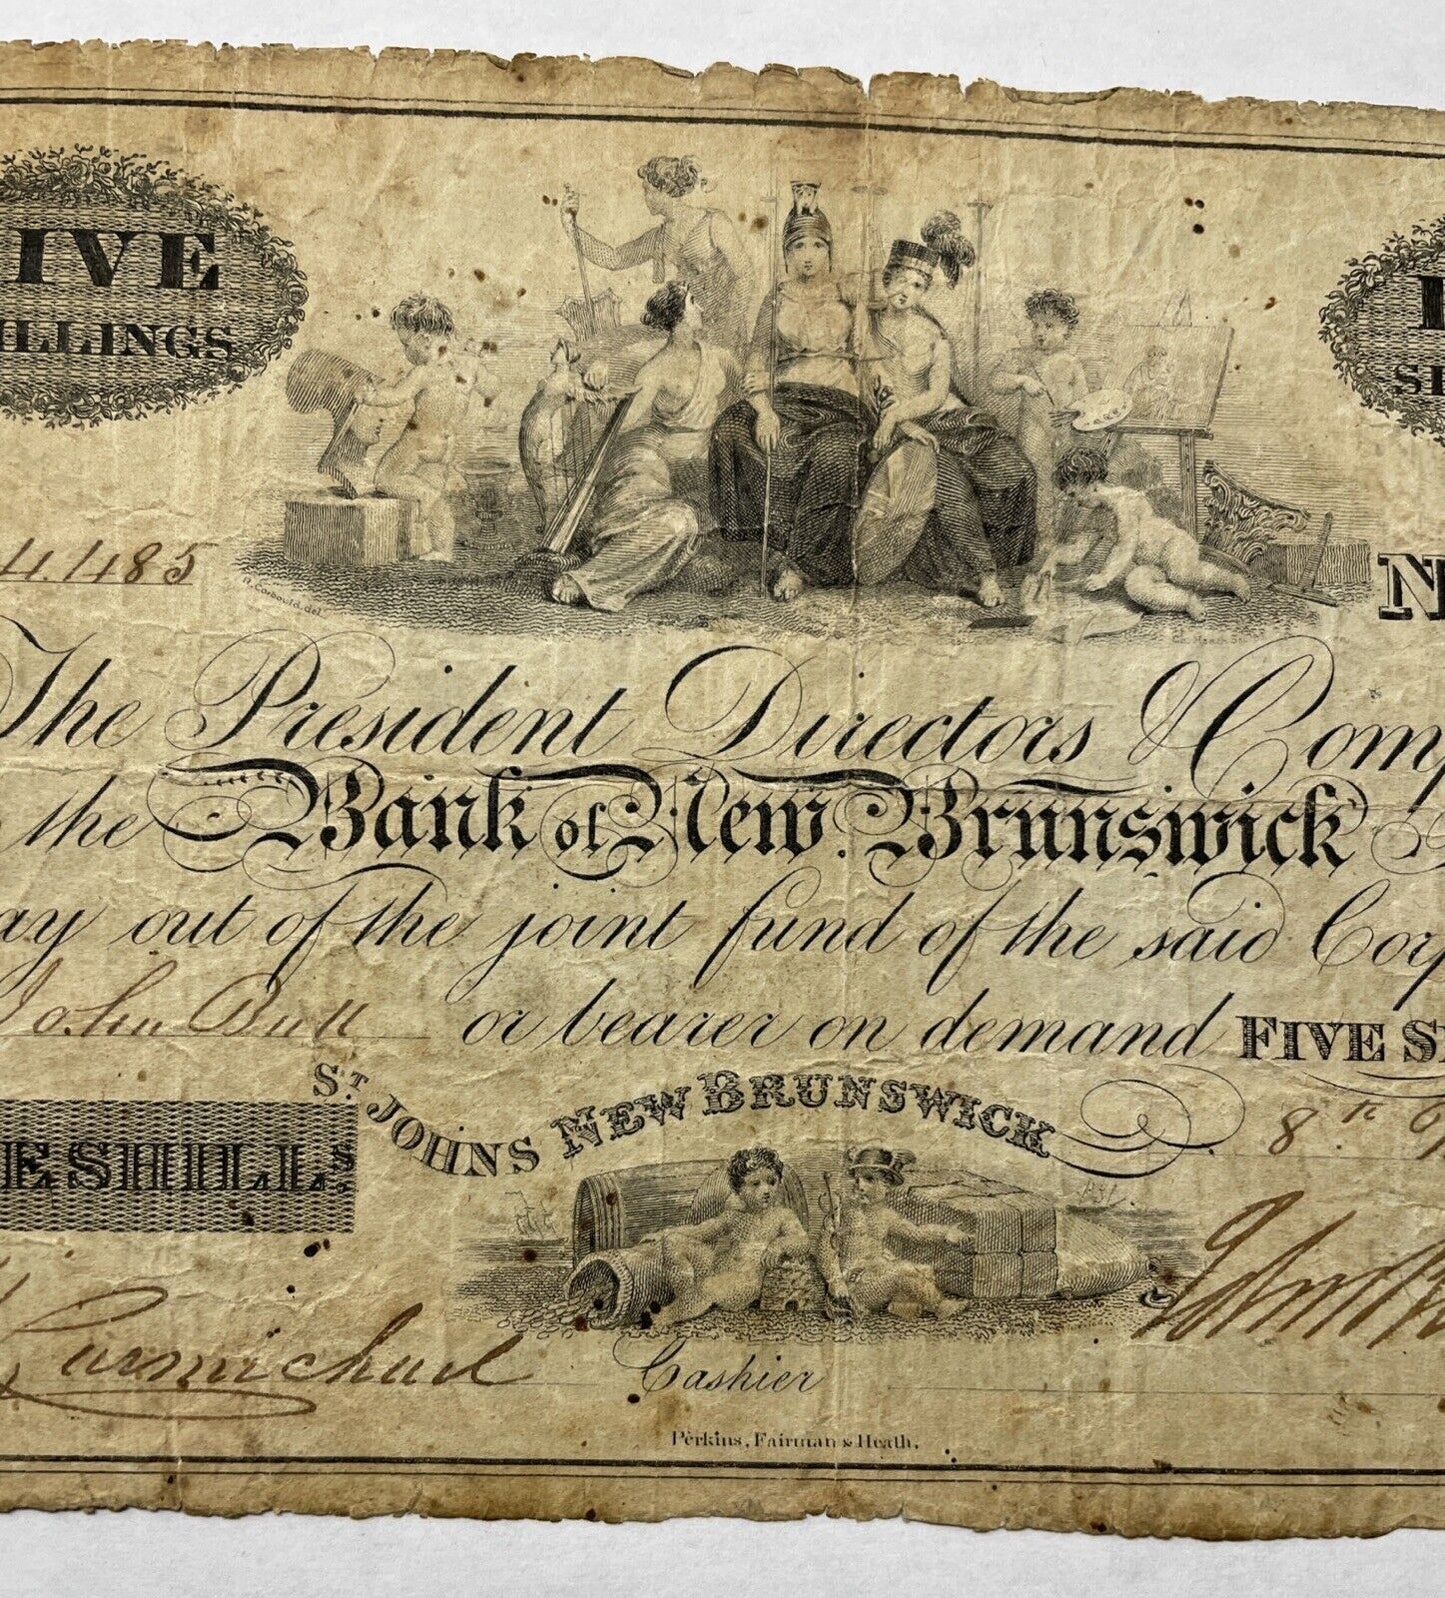 IVE
ILLINGS
SH
4.1485
R. Corbould del.
N
The President Directors & Comp
the Bank of New Brunswick
ay out of the joint fund of the said Corp
John Bull or bearer on demand FIVE S
ST. JOHNS NEW BRUNSWICK
8th
E SHILLS
Carmichael
Cashier
Perkins, Fairman & Heath.